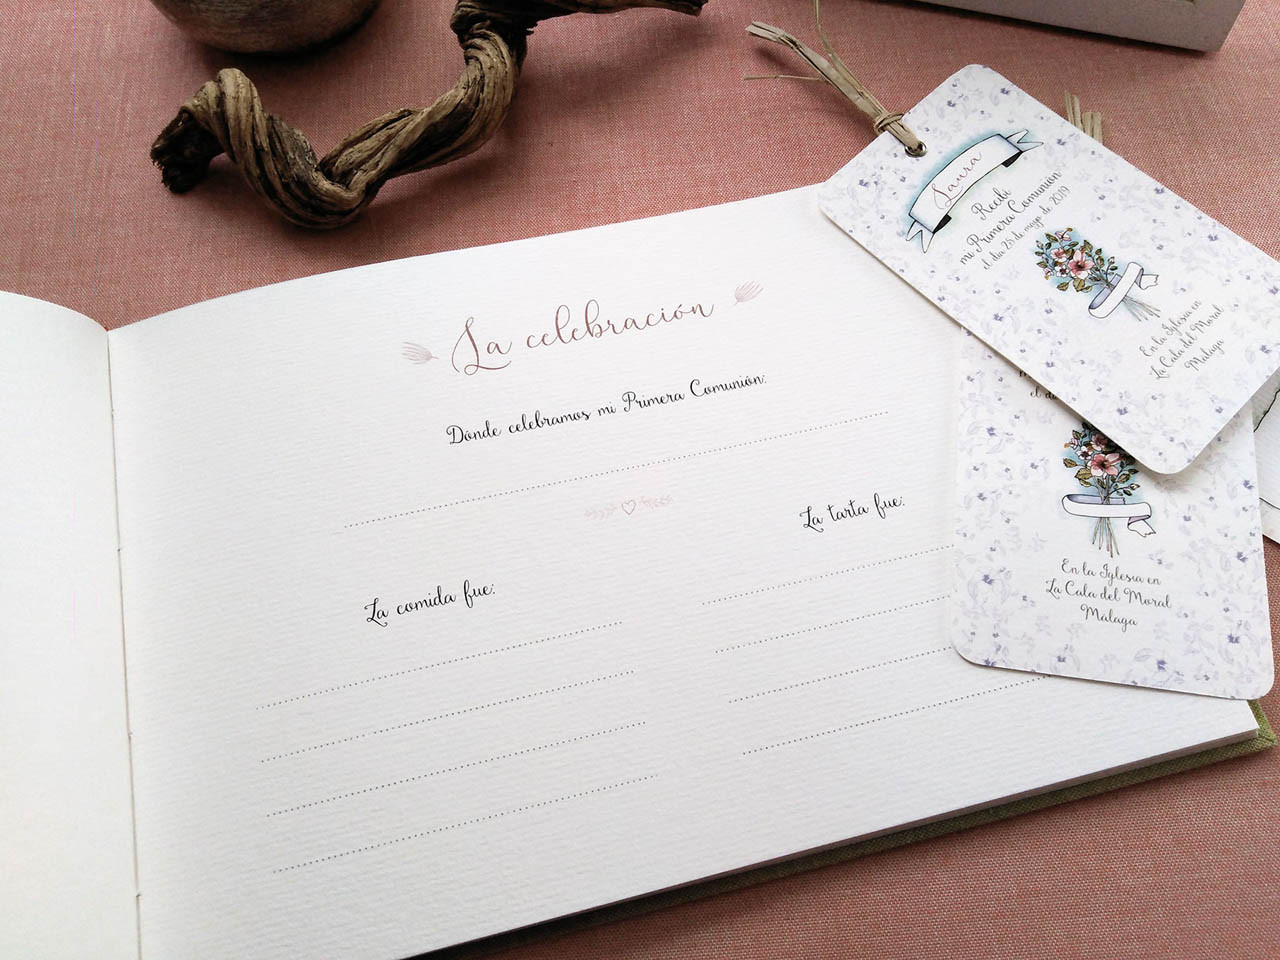 La celebración
Dónde celebramos mi Primera Comunión:
La tarta fue:
La comida fue:
Laura
Recibí
mi Primera Comunión
el día 25 de mayo de 2019
En la Iglesia en
La Cala del Moral
Malaga
el día
En la Iglesia en
La Cala del Moral
Malaga